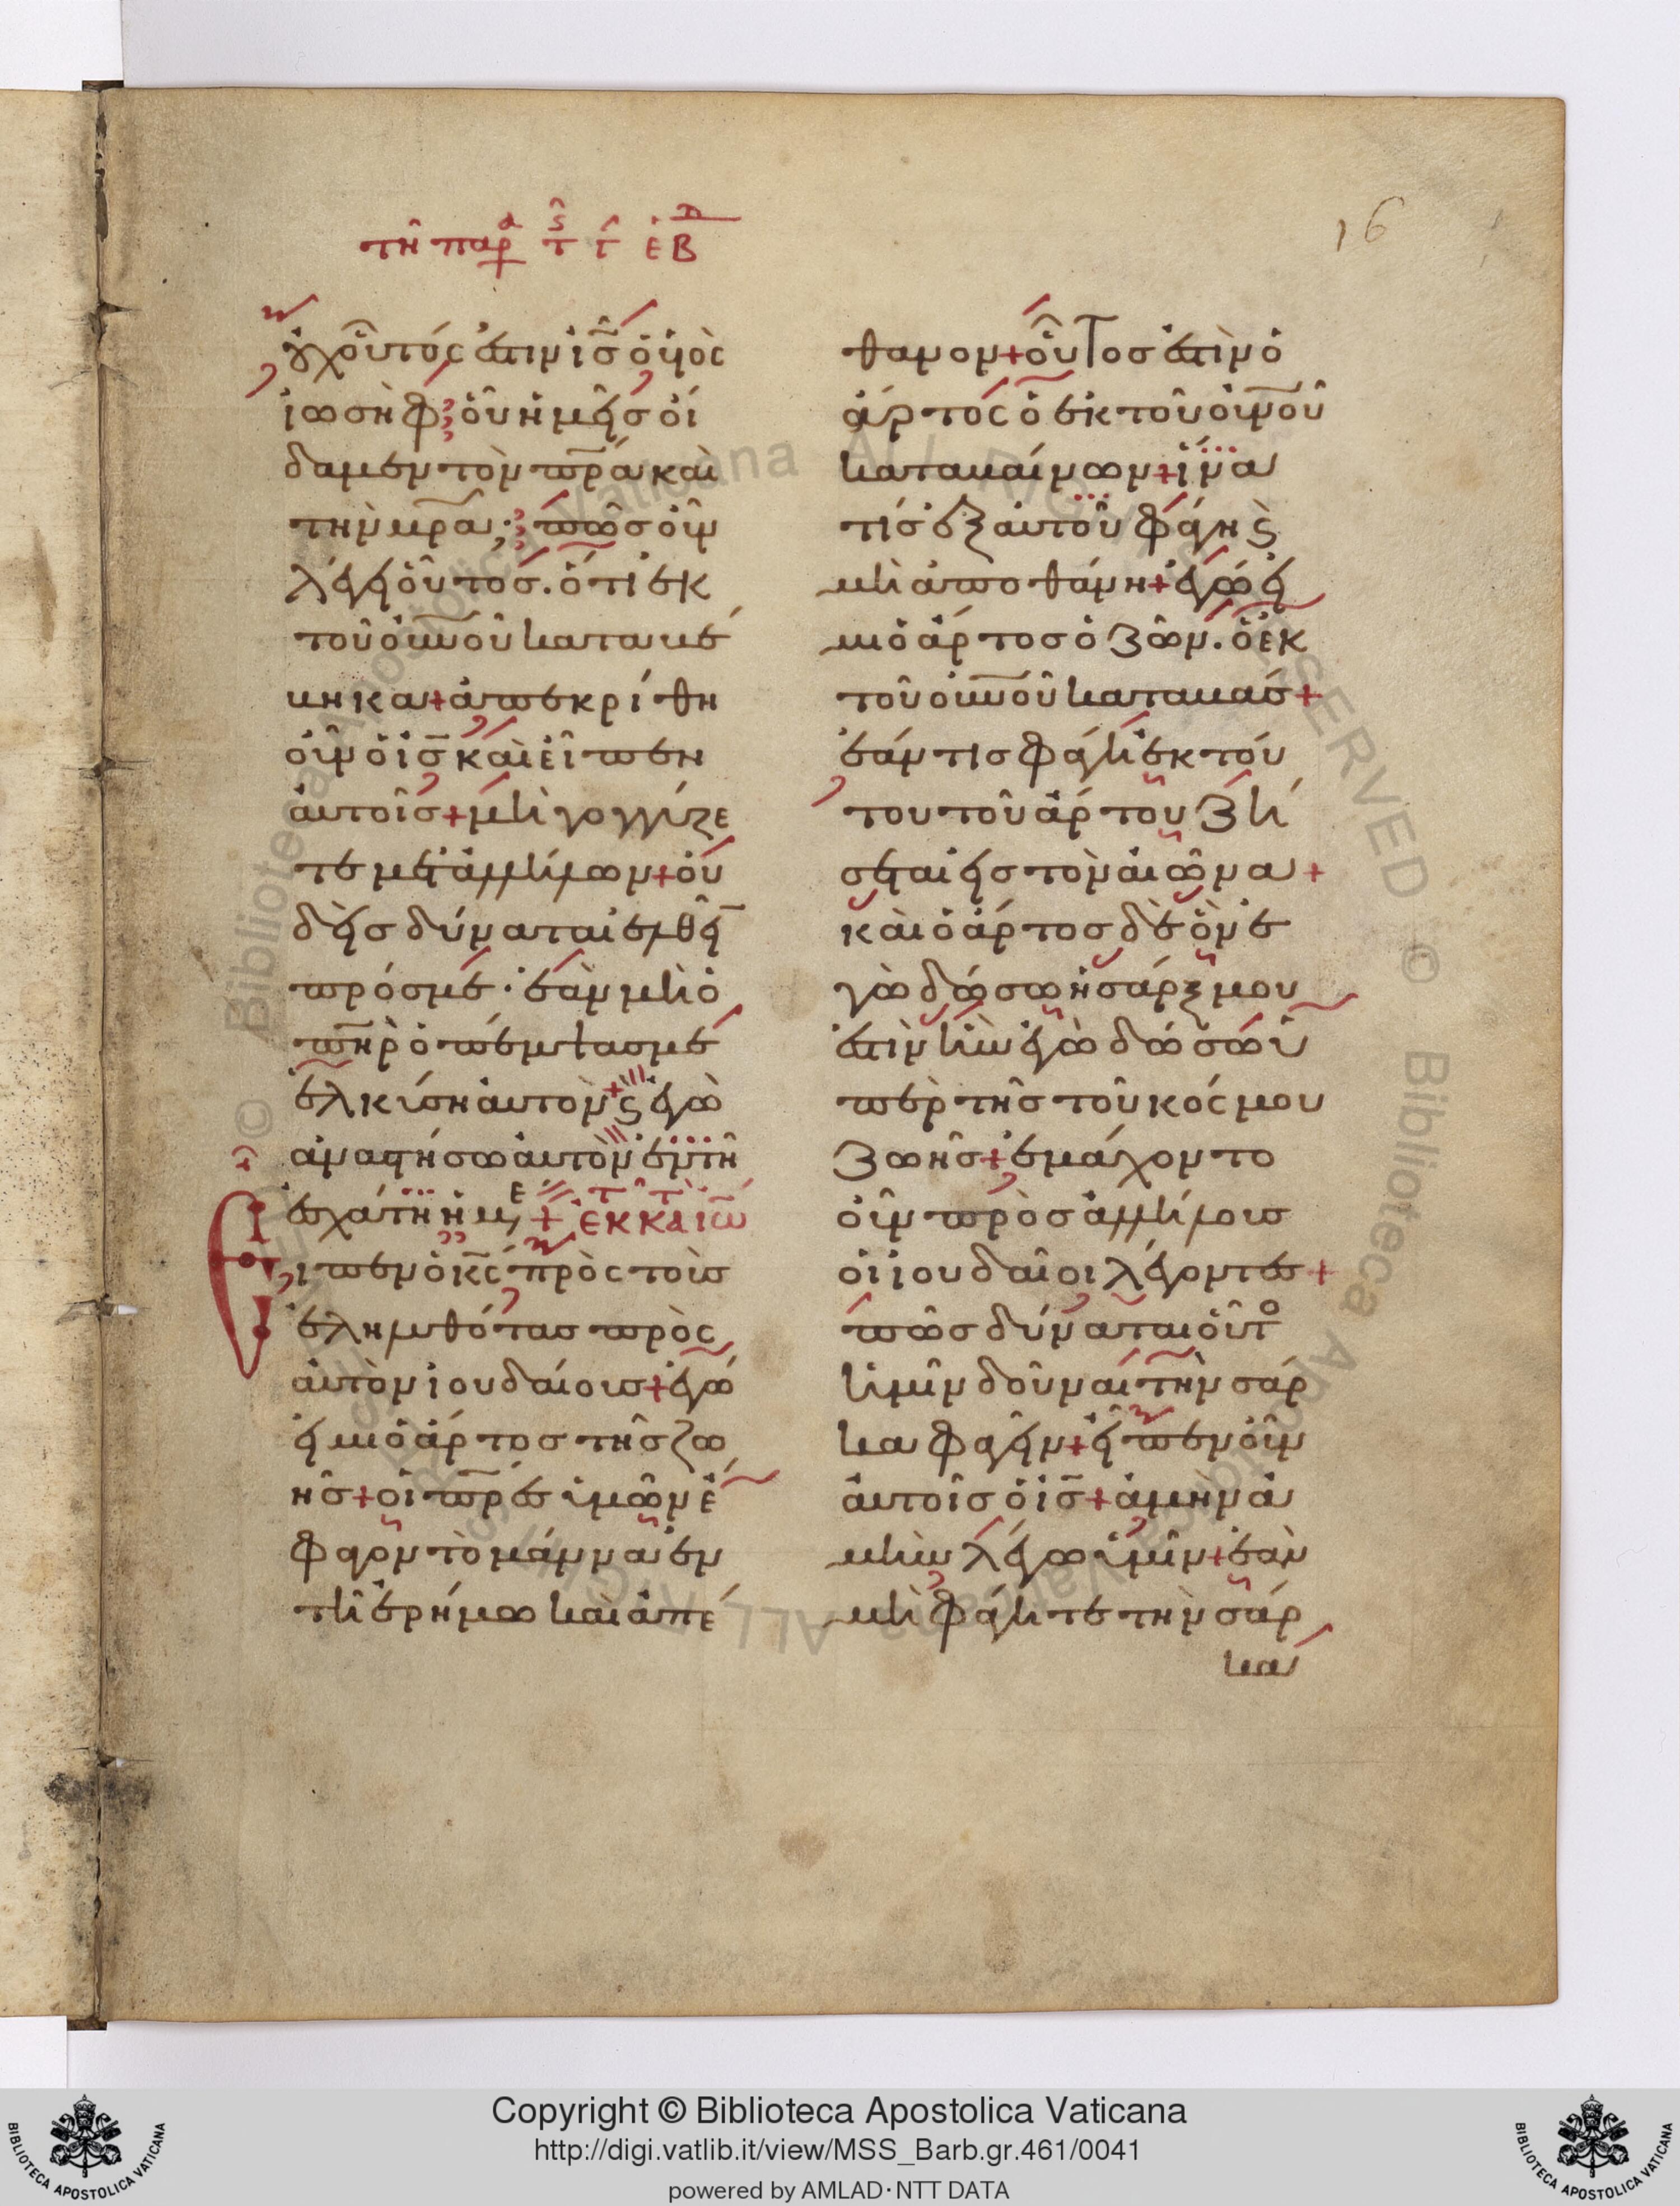 τῇ παρ τ τ ἐβ
16
ὀυχ οὗτός ἐστιν ις ὁ υἱὸς
ἰωσὴφ; οὗ ἡμεῖς οἴ
δαμεν τὸν πρα καὶ
τὴν μρα; πῶς οὖν
λέγει οὗτος. ὅτι ἐκ
τοῦ οὐνοῦ καταβέ
βηκα+ ἀπεκρίθη
οὖν ὁ ις καὶ εἶπεν
αὐτοῖς+ μὴ γογγύζε
τε μετ ἀλλήλων+ οὐ
δεὶς δύναται ἐλθεῖ
πρός με. ἐὰν μὴ ὁ
πηρ ὁ πέμψας με
ἑλκύσῃ αὐτὸν+ ς ἐγὼ
ἀναστήσω αὐτὸν ἐν τῇ
ἐσχάτῃ ἡμε, + ἐκ κα ιω
Εἶπεν ὁ κς πρὸς τοὺς
ἐληλυθότας πρὸς
αὐτὸν ἰουδαίους+ ἐγώ
εἰμι ὁ ἄρτος τῆς ζω
ῆς+ οἱ πρες ὑμῶν ἔ
φαγον τὸ μάννα ἐν
τῇ ἐρήμω καὶ ἀπέ
θανον+ οὗτος ἐστὶν ὁ
ἄρτος ὁ ἐκ τοῦ οὐνοῦ
καταβαίνων+ ἵνα
τίς ἐξ αὐτοῦ φάγη ς
μὴ ἀποθάνη+ ἐγώ εἰ
μι ὁ ἄρτος ὁ ζῶν. ὁ ἐκ
τοῦ οὐνοῦ καταβάς+
ἐάν τις φάγη ἐκ τού
του τοῦ ἄρτου ζή
σεται εἰς τὸν αἰῶνα+
καὶ ὁ ἄρτος δὲ ὃν ἐ
γὼ δώσω ἡ σάρξ μου
ἐστὶν ἣν ἐγὼ δώσω ὑ
πὲρ τῆς τοῦ κόσμου
ζωῆς+ ἐμάχοντο
οὖν πρὸς ἀλλήλους
οἱ ἰουδαῖοι λέγοντες+
πῶς δύναται οὗτο
ἡμῖν δοῦναι τὴν σάρ
κα φαγεῖν+ εἶπεν οὖν
αὐτοῖς ὁ ις+ ἀμὴν ἀ
μὴν λέγω ὑμῖν+ ἐὰν
μὴ φάγητε τὴν σάρ
κα
Copyright © Biblioteca Apostolica Vaticana
http://digi.vatlib.it/view/MSS_Barb.gr.461/0041
powered by AMLAD·NTT DATA
BIBLIOTECA APOSTOLICA VATICANA
BIBLIOTECA APOSTOLICA VATICANA